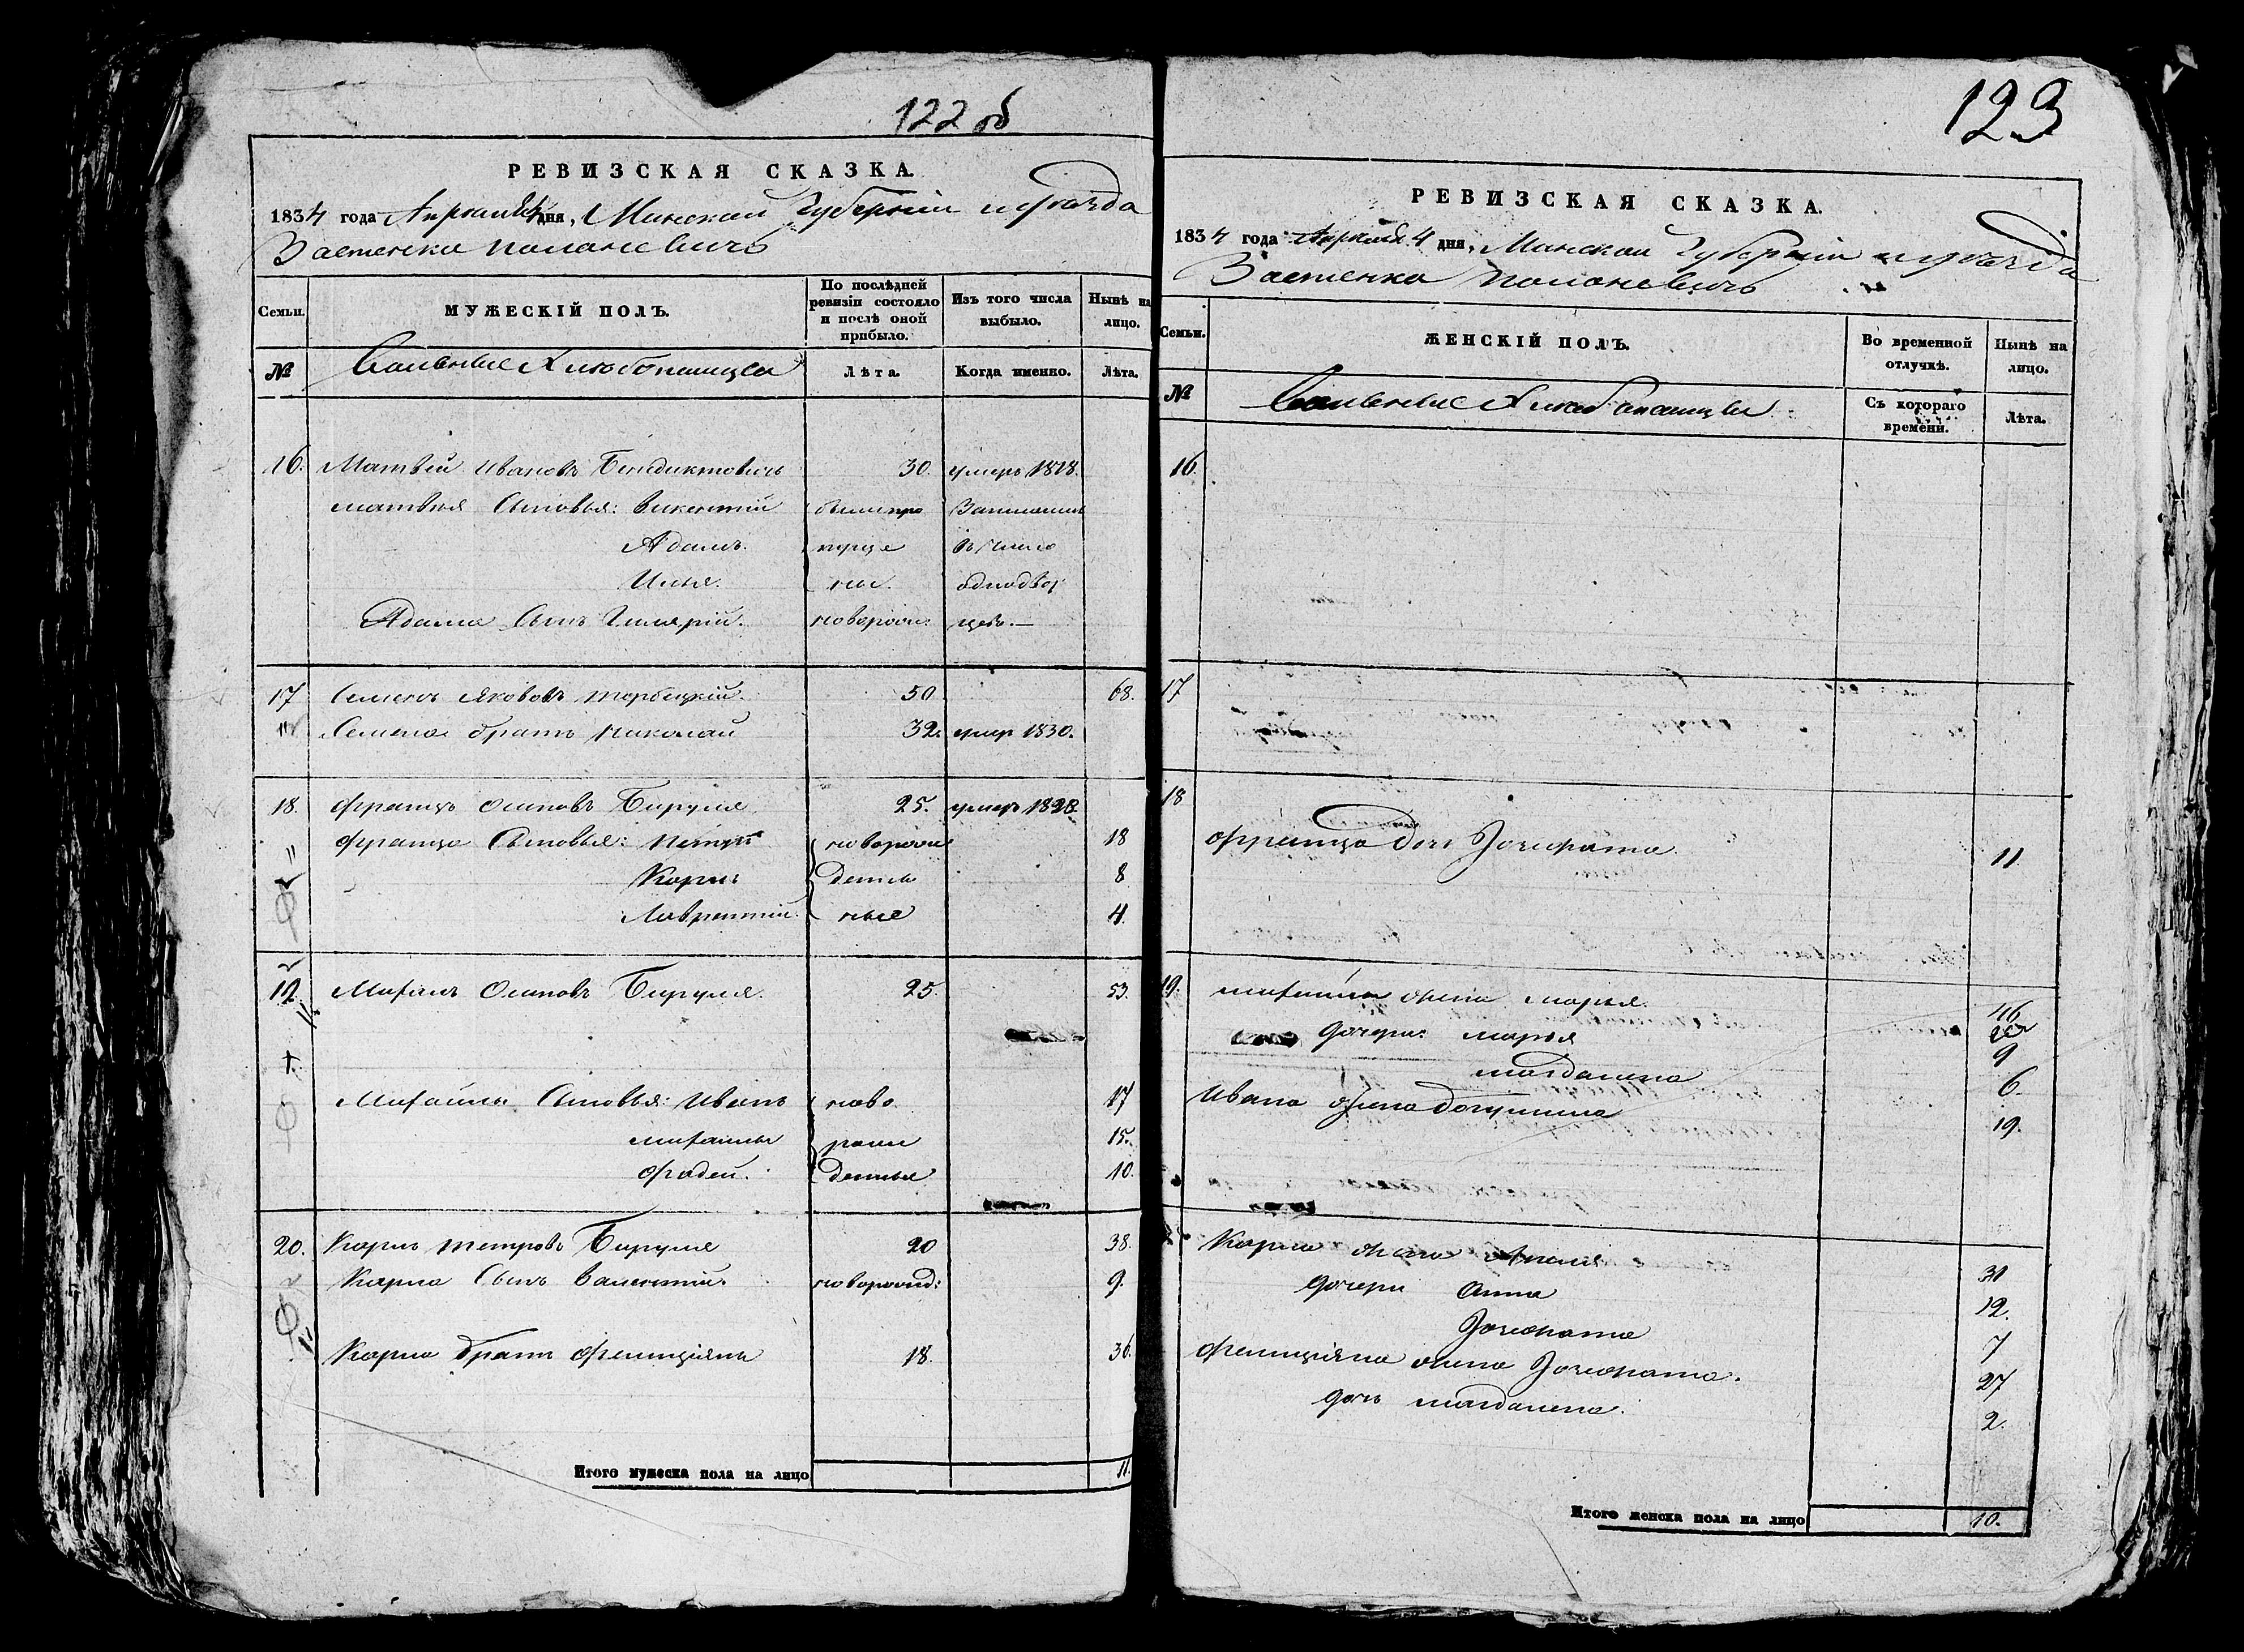 122 об
РЕВИЗСКАЯ СКАЗКА.
1834 года Апреля 4 дня, Минской Губерніи и уѣзда
Застенка
Семьи.
МУЖЕСКІЙ ПОЛЪ.
По послѣдней ревизіи состояло и послѣ оной прибыло.
Изъ того числа выбыло.
Нынѣ на лицо.
№
Вольные Хлебопашцы
Лѣта.
Когда именно.
Лѣта.
16. Матвѣй Ивановъ Бендиктовичъ 30. умеръ 1828.
Матвѣя Сыновья: Викентій были про Записаны
Адамъ. пуще въ число
Илья. ны. однодвор
Адама Сынъ Гилярій. новорож. цевъ.—
17 Семенъ Яковлевъ 50. 68.
Семена братъ Николай 32. умер 1830.
18. Францъ Осиповъ Бируля 25. умеръ 1828.
Франца Сыновья: Петръ новорож 18
Карлъ денно 8
Лаврентій ные 4.
19. Михаилъ Осиповъ Бируля. 25. 53.
Михаила Сыновья: Иванъ ново 17
Михаилъ рож 15.
Фадей. денные 10.
20. Карлъ Петровъ Бируля 20 38.
Карла Сынъ Валентій новорожд: 9.
Карла братъ Фелиціянъ 18. 36.
Итого мужеска пола на лицо 11.
123
РЕВИЗСКАЯ СКАЗКА.
1834 года Апреля 4 дня, Минской Губерніи и уѣзда
Застенка
Семьи.
ЖЕНСКІЙ ПОЛЪ.
Во временной отлучкѣ.
Нынѣ на лицо.
№
Вольные Хлебопашцы
Съ котораго времени.
Лѣта.
16.
17
18
Франца дочь Іозефата 11
19. Михаила жена Марья. 46
дочери: Марья 9
Магдалена 6.
Ивана жена 19.
Карла жена Анеля 31
дочери Анна 12.
Іозефата 7
Фелиціяна жена Іозефата. 27
дочь Магдалена. 2.
Итого женска пола на лицо 10.